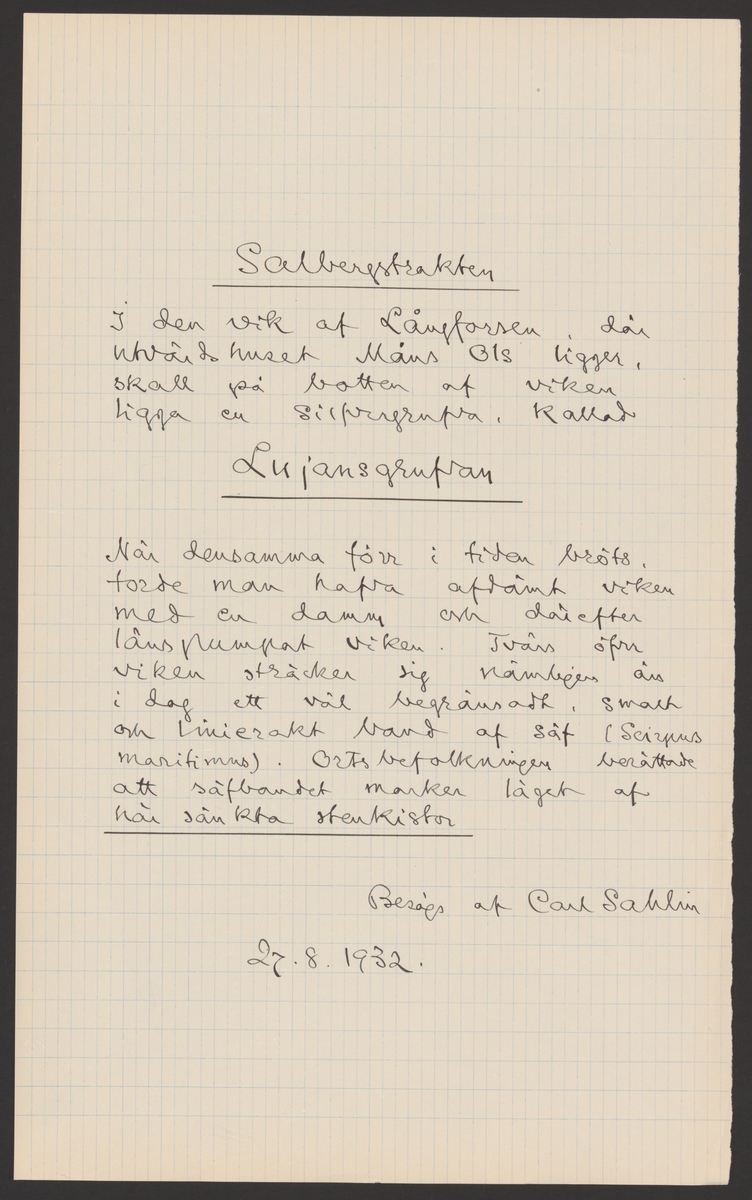 Salbergstrakten
I den vik af Långforsen, där
utvärdshuset Måns Ols ligger,
skall på botten af viken
ligga en Silfvergrufva, kallad
Lujansgrufvan
När densamma förr i tiden bröts,
torde man hafva afdämt viken
med en damm och därefter
länspumpat viken. Tvärs öfver
viken sträcker sig nämligen än
i dag ett väl begränsadt, smalt
och linierakt band af säf (Scirpus
maritimus). Ortsbefolkningen berättade
att säfbandet marker läget af
här sänkta stenkistor
Besågs af Carl Sahlin
27.8.1932.